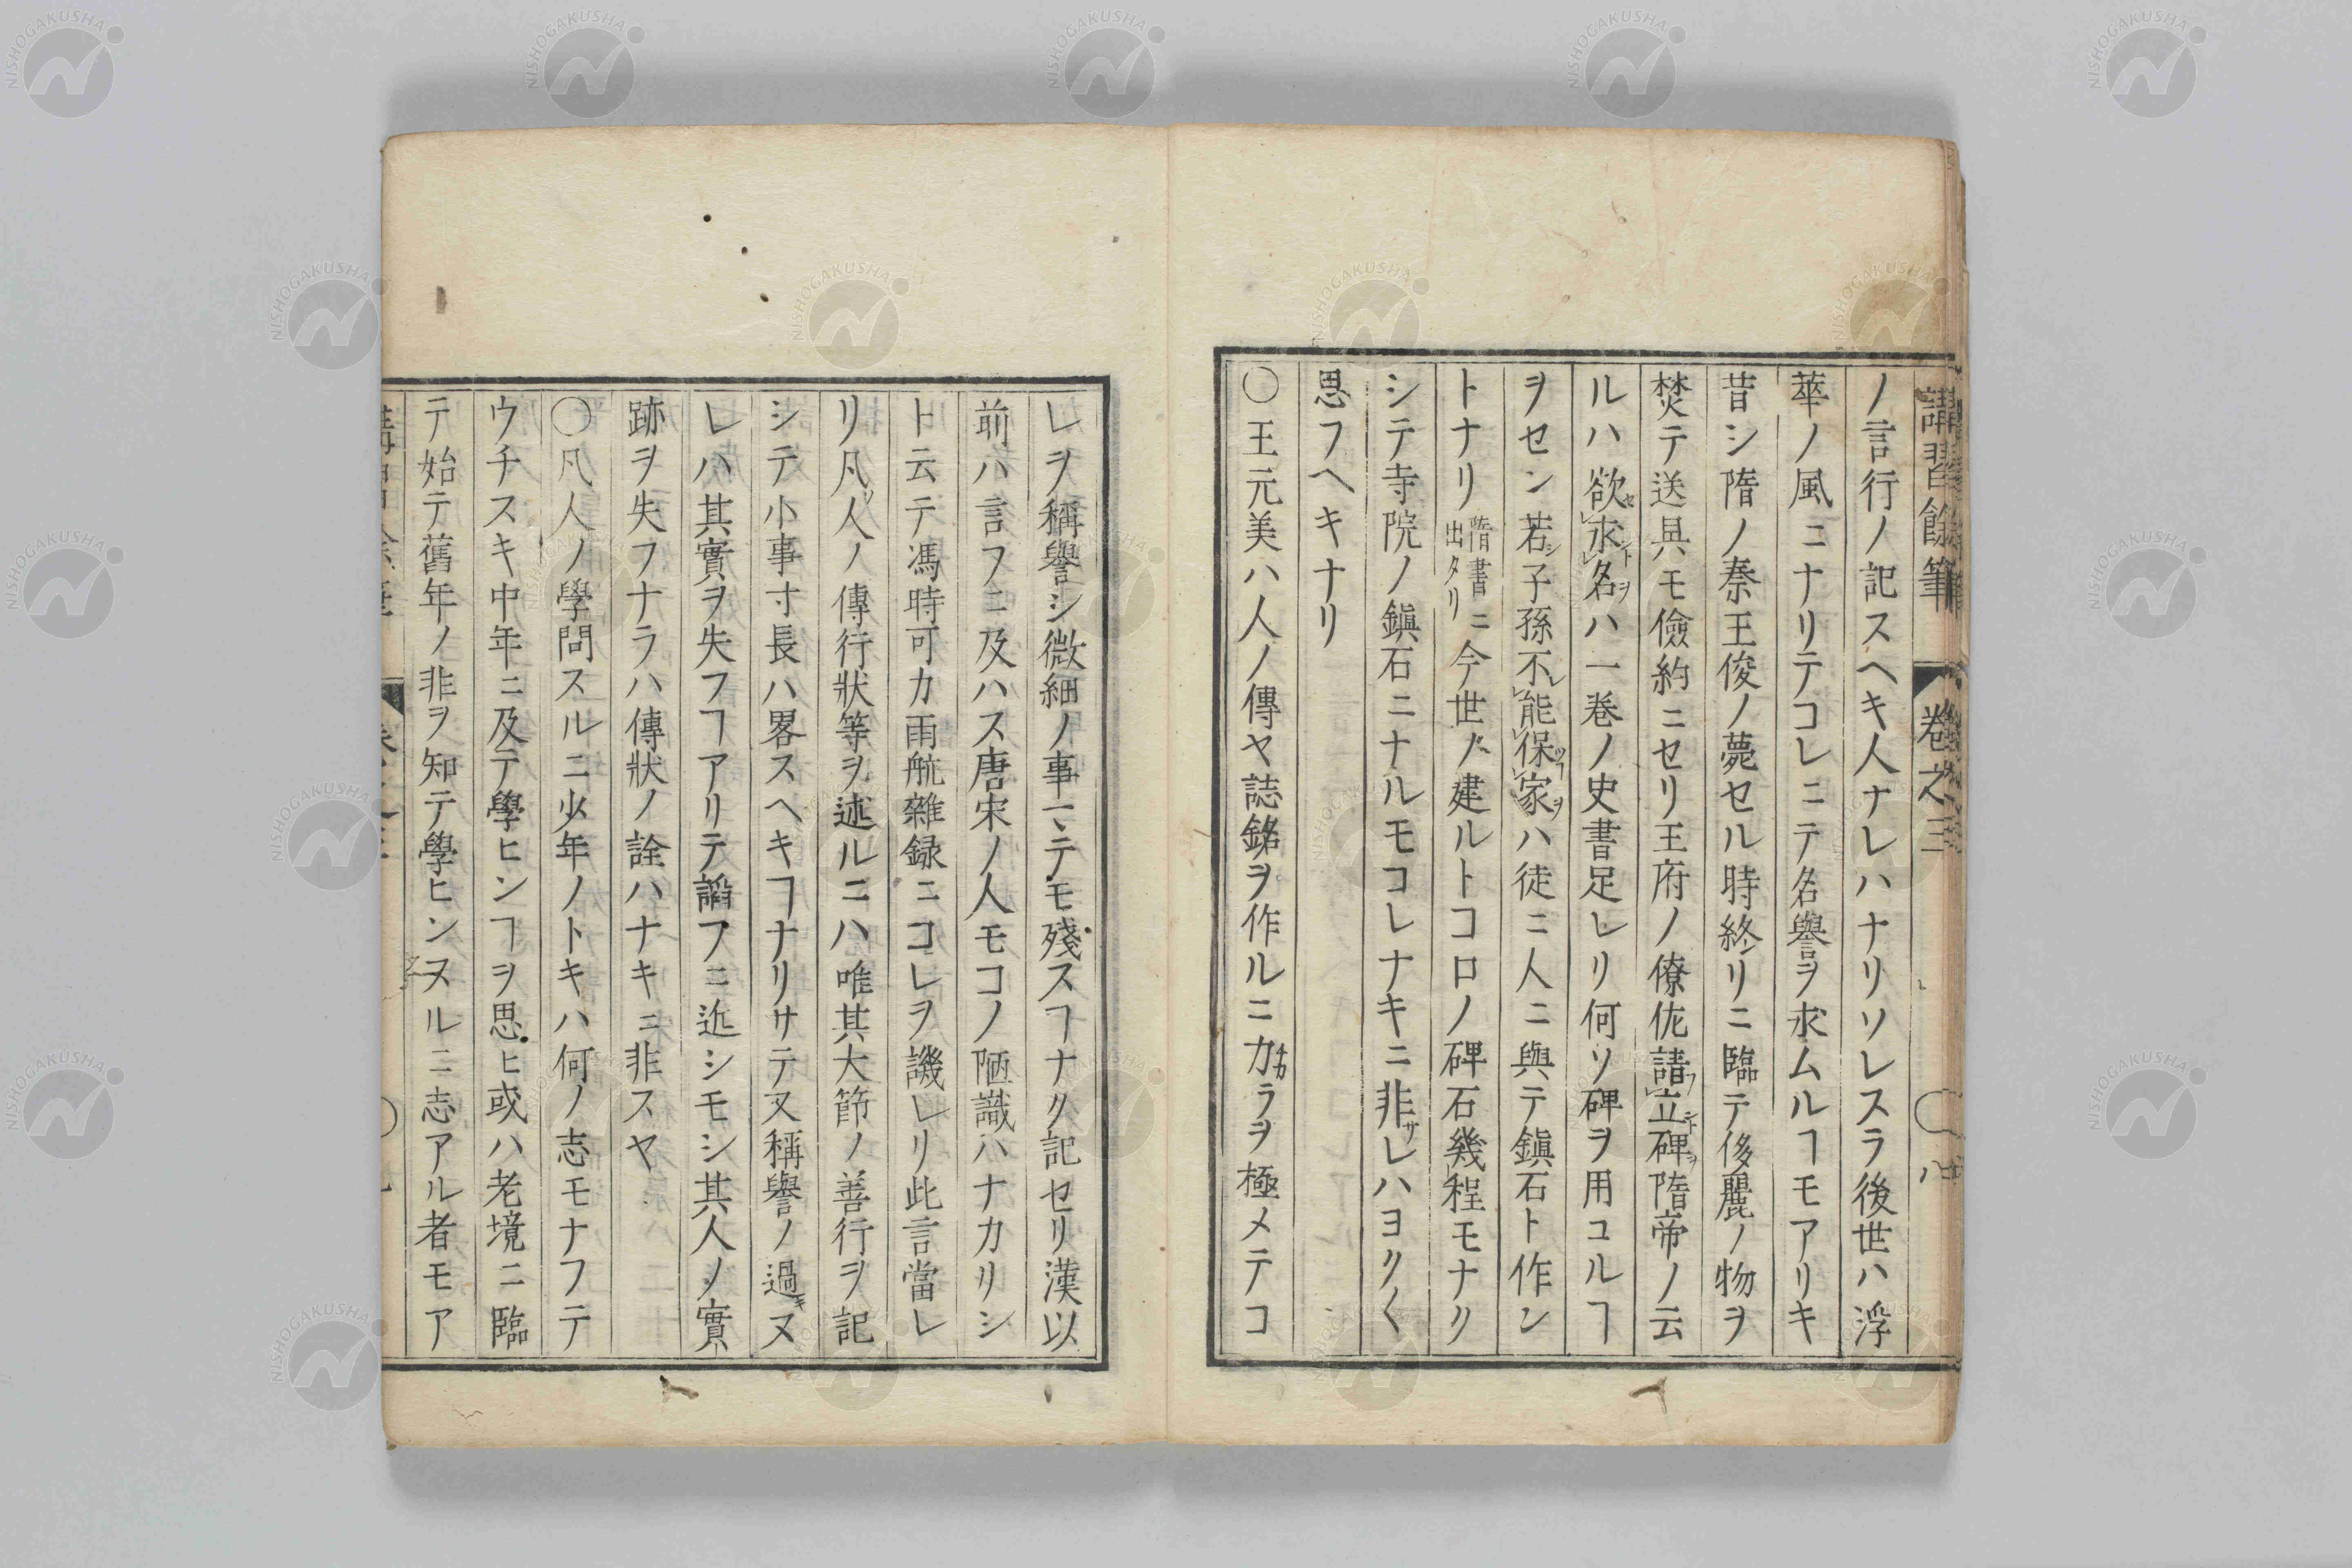 講習餘筆 卷之三 八
ノ言行ノ記スヘキ人ナレハナリソレスラ後世ハ浮
華ノ風ニナリテコレニテ名譽ヲ求ムルヿモアリキ
昔シ隋ノ秦王俊ノ薨セル時終リニ臨テ侈麗ノ物ヲ
焚テ送具モ儉約ニセリ王府ノ僚佐請フ立ンヿヲ碑ヲ隋帝ノ云
ルハ欲セハ求ント名ヲハ一巻ノ史書足レリ何ソ碑ヲ用ユルヿ
ヲセン若シ子孫不レ能レ保ツヿ家ヲハ徒ニ人ニ與テ鎭石ト作ン
トナリ隋書ニ出タリ今世ニ建ルトコロノ碑石幾程モナク
シテ寺院ノ鎭石ニナルモコレナキニ非サレハヨク〱
思フヘキナリ
〇王元美ハ人ノ傳ヤ誌銘ヲ作ルニ力チカラヲ極メテコ
レヲ稱譽シ微細ノ事ニテモ殘スヿナク記セリ漢以
前ハ言フニ及ハス唐宋ノ人モコノ陋識ハナカリシ
ト云テ馮時可カ雨航雜録ニコレヲ譏レリ此言當レ
リ凡ソ人ノ傳行狀等ヲ述ルニハ唯其大節ノ善行ヲ記
シテ小事寸長ハ畧スヘキヿナリサテ又稱譽ノ過キヌ
レハ其實ヲ失フヿアリテ謟フニ近シモシ其人ノ實
跡ヲ失フナラハ傳狀ノ詮ハナキニ非スヤ
〇凡人ノ學問スルニ少年ノトキハ何ノ志モナフテ
ウチスキ中年ニ及テ學ヒンヿヲ思ヒ或ハ老境ニ臨
テ始テ舊年ノ非ヲ知テ學ヒンヌルニ志アル者モア